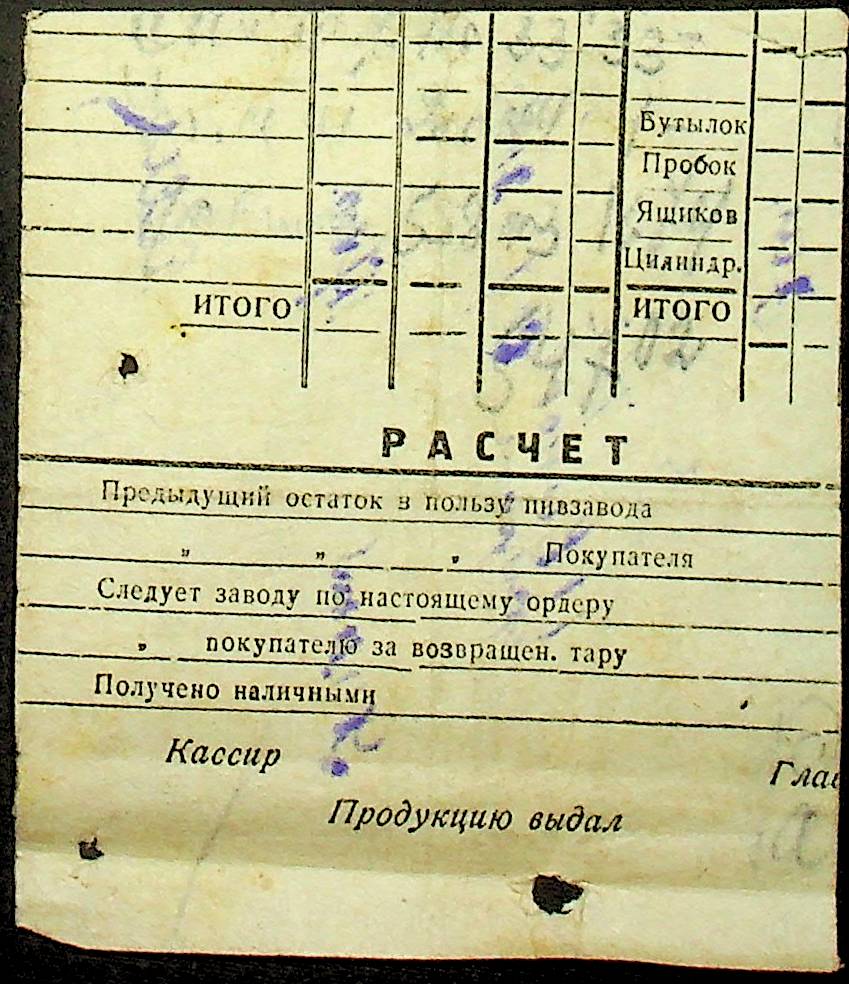 Бутылок
Пробок
Ящиков
Цилиндр.
ИТОГО ИТОГО
РАСЧЕТ
Предыдущий остаток в пользу пивзавода
" " " Покупателя
Следует заводу по настоящему ордеру
" покупателю за возвращен. тару
Получено наличными
Кассир
Глав
Продукцию выдал